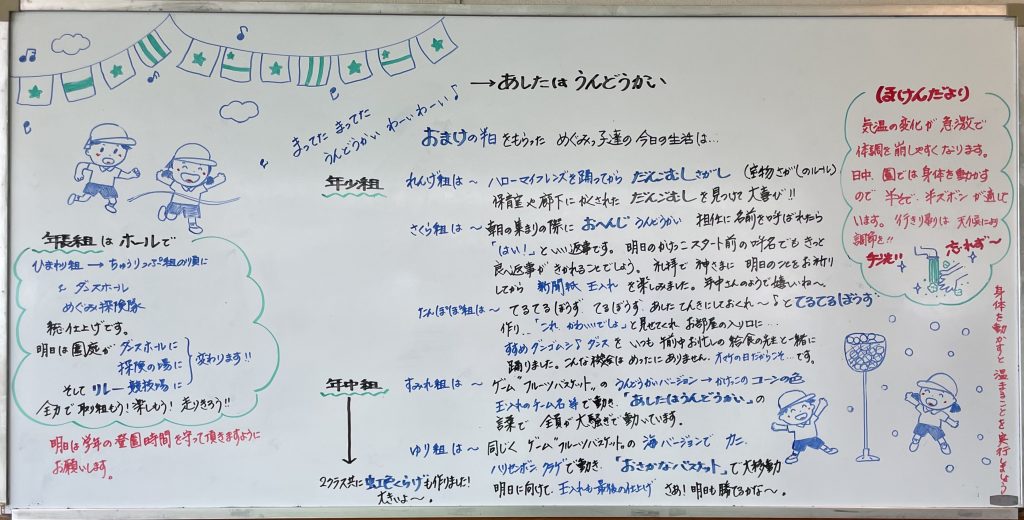 →あしたは うんどうかい
まってた まってた
うんどうかい わーいわーい♪
おまけの1日をもらった めぐみっ子達の今日の生活は…
年少組
れんげ組は〜 ハローマイフレンズを踊ってから だんごむしさがし (宝物さがしのルール)
保育室や廊下にかくされた だんごむしを見つけて大喜び!!
さくら組は〜 朝の集まりの際に おへんじうんどうかい 担任に名前を呼ばれたら
「はい!」といい返事です。明日のかけっこスタート前の呼名でもきっと
良い返事がきかれることでしょう。礼拝で神さまに明日のことをお祈り
してから 新聞紙玉入れを楽しみました。年中さんのようで嬉しいね〜。
たんぽぽ組は〜 てるてるぼうず てるぼうず あした てんきにしておくれ〜♪とてるてるぼうず
作り。「これ かわいいでしょ」と見せてくれ お部屋の入り口に…
すすめダンゴムシ♪ダンスを いつも午前中お忙しい給食の先生と一緒に
踊りました。こんな機会はめったにありません。オマケの日だからこそ…です。
年中組
すみれ組は〜 ゲーム"フルーツバスケット"の うんどうかいバージョン→かけっこのコーンの色
玉入れのチーム名 等で動き、「あしたはうんどうかい」の
言葉で 全員が大騒ぎで動いています。
ゆり組は〜 同じく ゲーム"フルーツバスケット"の海バージョンで カニ、
ハリセンボン クラゲで動き、「おさかなバスケット」で大移動
明日に向けて、玉入れも最後の仕上げ さあ!明日も勝てるかな〜。
2クラス共に虹色くらげも作りました!
大きいよ〜。
年長組はホールで
ひまわり組→ちゅうりっぷ組の順に
ダンスホール
めぐみ探険隊
総仕上げです。
明日は園庭が ダンスホールに
探険の場に
変わります!!
そして リレー競技場に
全力で取り組もう!楽しもう!走りきろう!!
明日は学年の登園時間を守って頂きますように
お願いします。
ほけんだより
気温の変化が急激で
体調を崩しやすくなります。
日中、園では身体を動かす
ので半そで、半ズボンが適して
います。行き帰りは天候により
調節を!!
手洗い
忘れず〜
身体を動かすと温まることを実行しましょう